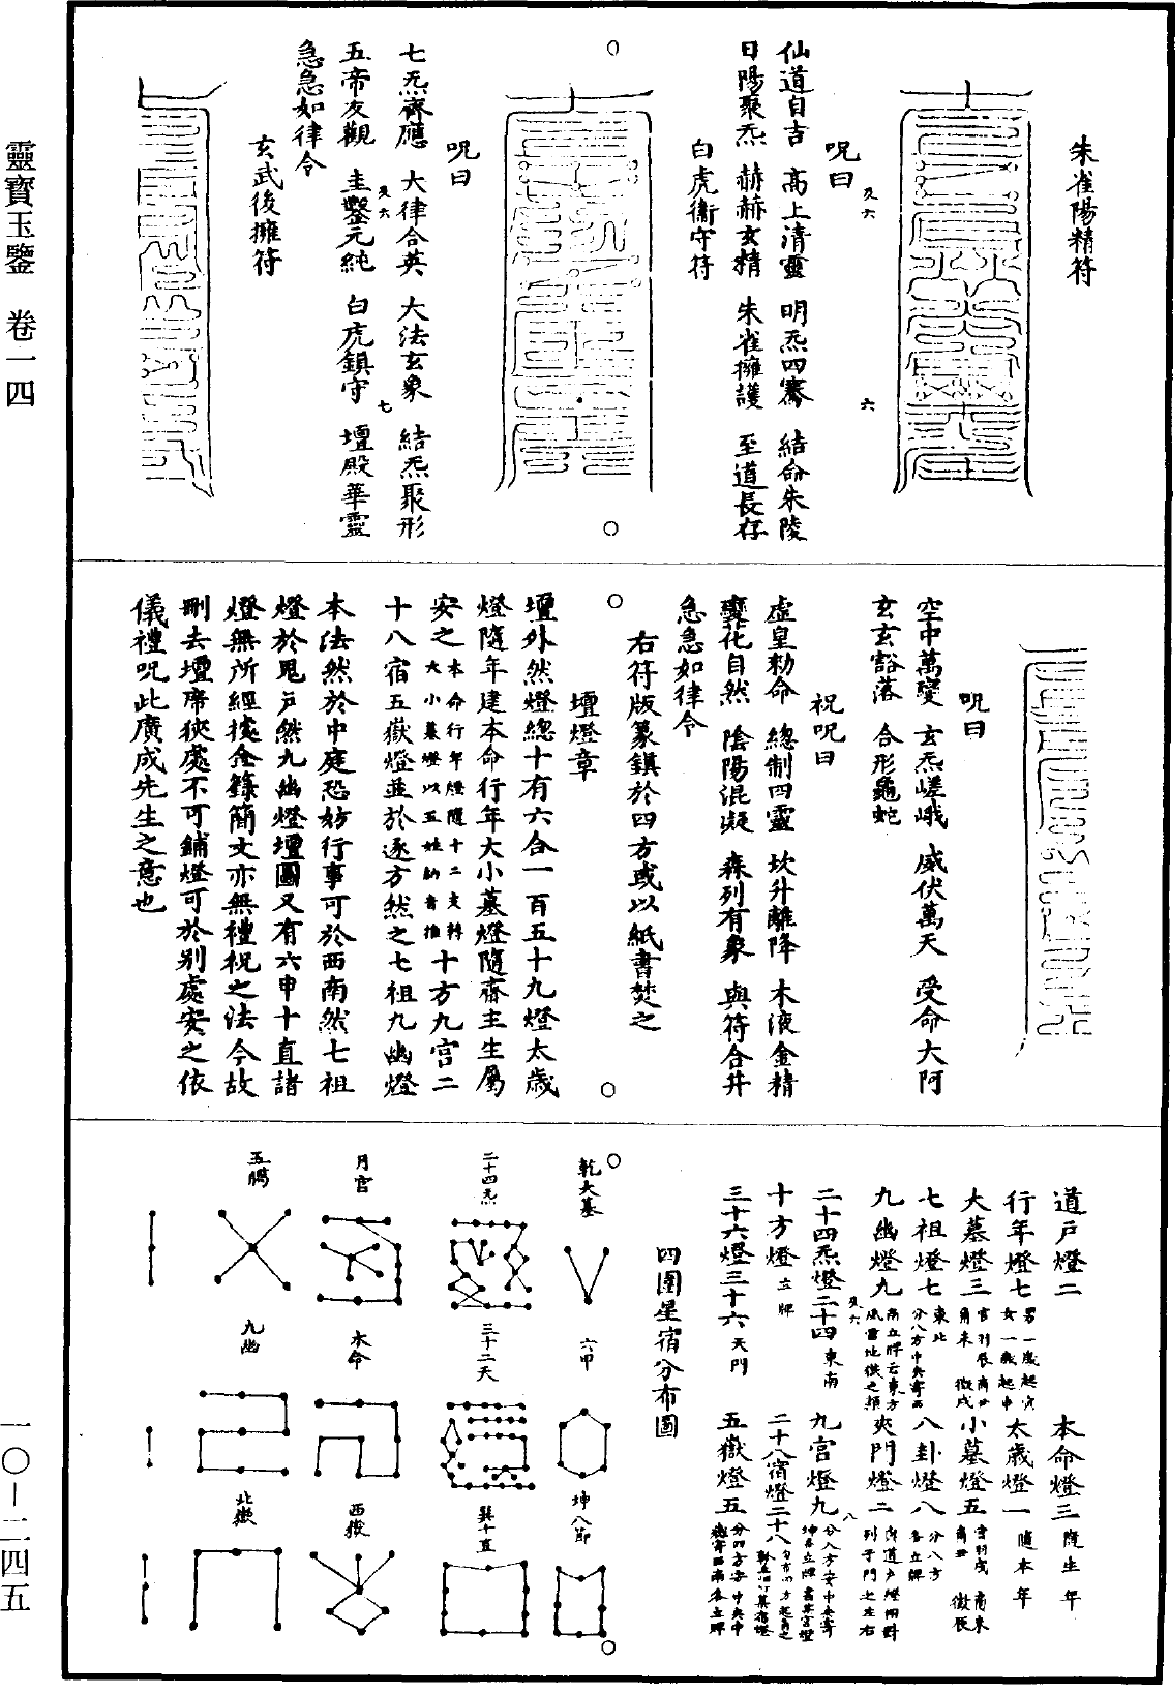 靈寶玉鑒 卷一四
一〇—二四五
朱雀陽精符
呪曰
仙道自吉 高上清靈 明炁四騫 結命朱陵
日陽聚炁 赫赫女精 朱雀擁護 至道長存
白虎衛守符
呪曰
七炁齊應 大律合英 大法玄象 結炁聚形
五帝友觀 圭鑿元純 白虎鎮守 壇殿華靈
急急如律令
玄武後擁符
呪曰
空中萬變 玄炁嵯峨 威伏萬天 受命大阿
玄玄豁落 合形龜蛇
祝呪曰
虛皇勑命 總制四靈 坎升離降 木液金精
變化自然 陰陽混凝 森列有象 與符合并
急急如律令
右符版篆鎮於四方或以紙書焚之
壇燈章
壇外然燈總十有六合一百五十九燈太歲
燈隨年建本命行年大小墓燈隨齋主生屬
安之本命行年燈隨十二支轉大小墓燈以五姓納音推十方九宮二
十八宿五嶽燈並於逐方然之七祖九幽燈
本法然於中庭恐妨行事可於西南然七祖
燈於鬼戶然九幽燈壇圖又有六甲十直諸
燈無所經據金籙簡文亦無禮祝之法今故
刪去壇席狹處不可鋪燈可於別處安之依
儀禮呪此廣成先生之意也
道戶燈二 本命燈三隨生年
行年燈七男一歲起寅女一歲起申 太歲燈一隨本年
大墓燈三宮羽辰商丑角未徵戌 小墓燈五宮羽戌商未角丑徵辰
七祖燈七東北 八卦燈八分八方各立牌
九幽燈九分八方中央寄西南立牌云東方風雷地獄之類 夾門燈二與道戶燈相對列于門之左右
二十四炁燈二十四東南 九宮燈九分八方安中央寄坤
十方燈立牌 二十八宿燈二十八
三十六燈三十六天門 五嶽燈五分四方安中央
四圍星宿分布圖
乾大墓
六甲
坤八節
二十四炁
三十二天
巽十直
月宮
本命
西嶽
五臟
九幽
北嶽